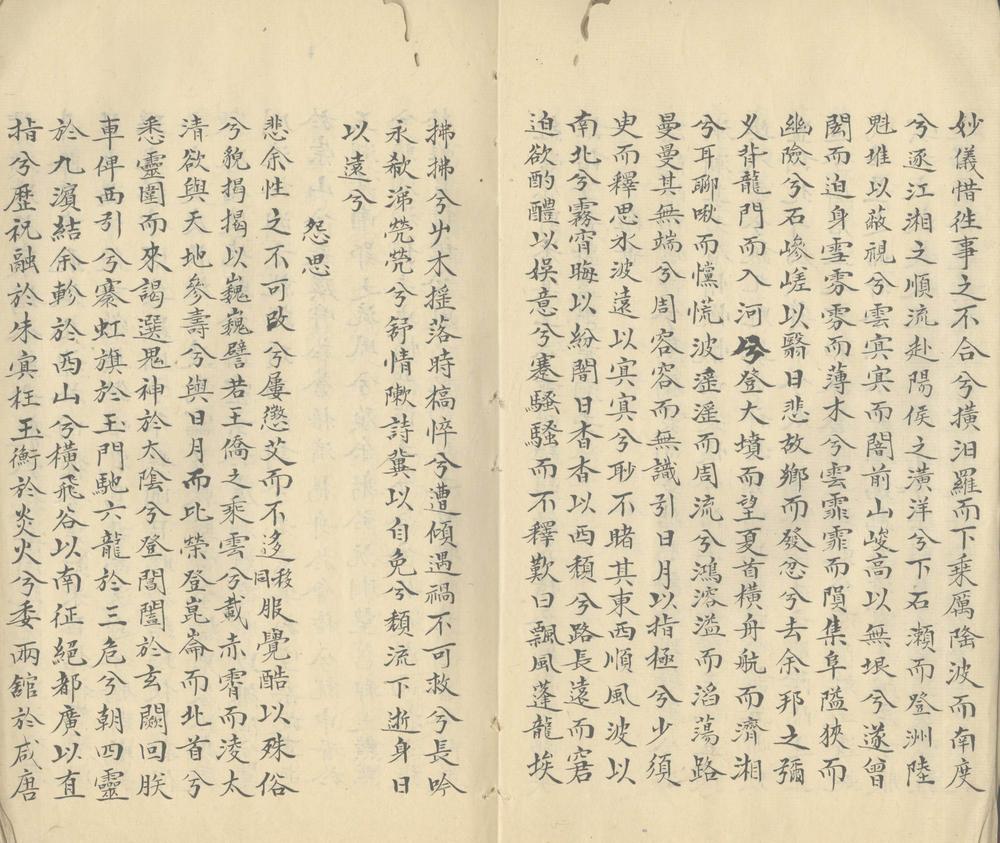 妙儀惜徃事之不合兮橫汨羅而下乘厲隆波而南度
兮逐江湘之順流赴陽侯之潢洋兮下石瀨而登洲陸
魁堆以蔽視兮雲寞寞而闇前山峻高以無垠兮遂曾
閎而迫身雪雰雰而薄木兮雲霏霏而隕集阜隘狹而
幽險兮石嵾嵯以翳日悲故鄉而發忿兮去余邦之彌
乂背龍門而入河兮登大墳而望夏首橫舟航而濟湘
兮耳聊啾而戃慌波滛滛而周流兮鴻溶溢而滔蕩路
曼曼其無端兮周容容而無識引日月以指極兮少須
史而釋思水波遠以寞寞兮眇不睹其東西順風波以
南北兮霧宵晦以紛闇日杳杳以西頹兮路長遠而窘
迫欲酌醴以娛意兮蹇騷騷而不釋歎曰飄風蓬龍埃
拂拂兮屮木摇落時槁悴兮遭傾遇禍不可救兮長吟
永欷涕煢煢兮舒情敶詩冀以自免兮頹流下逝身日
以遠兮
怨思
悲余性之不可改兮屢懲艾而不迻移同服覺酷以殊俗
兮貌揭揭以巍巍譬若王僑之乘雲兮載赤霄而淩太
清欲與天地參壽兮與日月而比榮登崑崙而北首兮
悉靈圉而來謁選鬼神於太陰兮登閶闔於玄闕回朕
車俾西引兮褰虹旗於玉門馳六龍於三危兮朝四靈
於九濱結余軫於西山兮橫飛谷以南征絕都廣以直
指兮歷祝融於朱寞枉玉衡於炎火兮委兩舘於咸唐